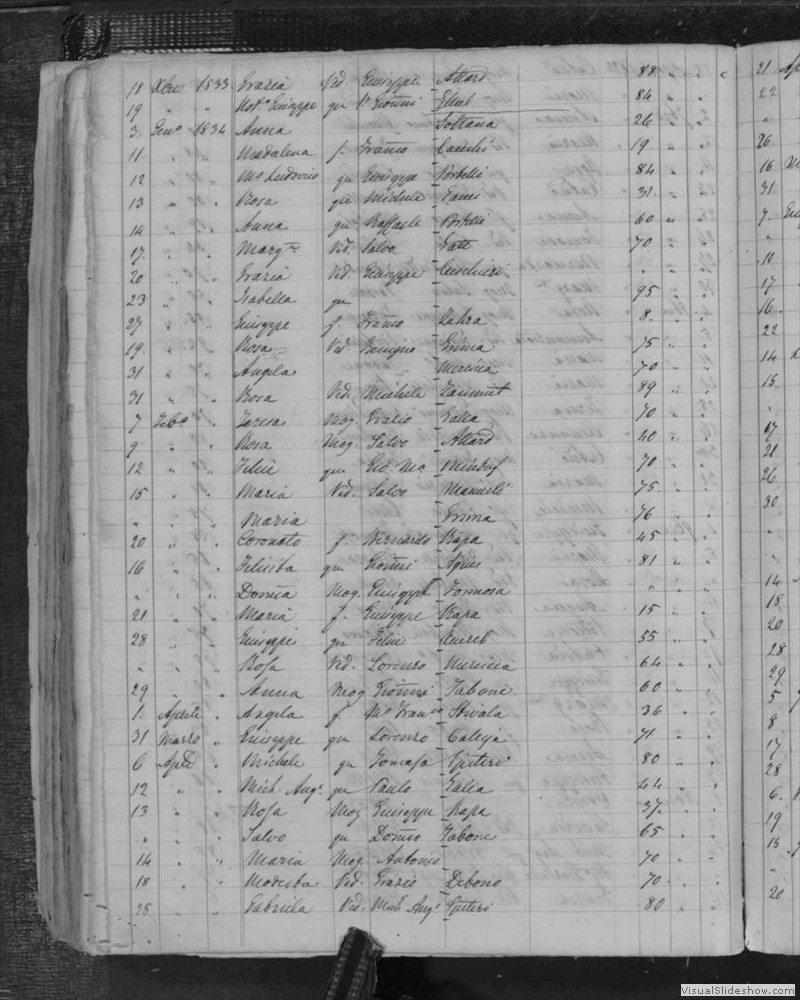 18 Xbre 1833 Grazia Vid. Giuseppe Attard 88 " "
19 " " Not.o Giuseppe qu Gioñni Ellul 84 " "
3 Gen.o 1834 Anna Soltana 26 " "
11 " " Madalena f. Franco 19 " "
12 " " M.o Ludovico qu Giuseppe Portelli 84 " "
13 " " Rosa qu Michele 31 " "
14 " " Anna qu Raffaele Portelli 60 " "
17 " " Marg.ta Vid. Salvo 70 " "
20 " " Grazia Vid. Giuseppe " "
23 " " Isabella qu 95 " "
27 " " Giuseppe f. Franco Zahra 8 " "
19 " " Rosa Vid. Benigno Grima 75 " "
31 " " Angela Mercica 70 " "
31 " " Rosa Vid. Michele Zammit 89 " "
7 Feb.o " Teresa Mog. Grazio Galea 70 " "
9 " " Rosa Mog. Salvo Attard 40 " "
12 " " Felice qu Gio. Ma. 70 " "
15 " " Maria Vid. Salvo Mamuli 75 " "
" " " Maria Grima 76 " "
20 " " Coronato f. Bernardo Rapa 45 " "
16 " " Felicita qu Gioñni Agius 81 " "
" " " Domca Mog. Giuseppe Formosa " " "
21 " " Maria f. Giuseppe Rapa 15 " "
28 " " Giuseppe qu Felice Aureb 55 " "
" " " Rosa Vid. Lorenzo Mercica 64 " "
29 " " Anna Mog Gioñni Tabone 60 " "
1 Aprile " Angela f. M.o Franco Stivala 36 " "
31 Marzo " Giuseppe qu Lorenzo Calleja 71 " "
6 Aple " Michele qu Tomaso Spiteri 80 " "
12 " " Mich. Ang.o qu Paulo Falia 44 " "
13 " " Rosa Mog Giuseppe Rapa 37 " "
" " " Salvo qu Domco Tabone 65 " "
14 " " Maria Mog. Antonio 70 " "
18 " " Modesta Vid. Grazio Debono 70 " "
28 " " Gabriela Vid. Mich. Ang.o Spiteri 80 " "
21 Ap
22
"
26
16
31
7
"
10
17
16
22
14
15
"
17
21
26
30
"
"
14
18
20
28
29
5
8
17
28
6
19
15
"
20
VisualSlideshow.com